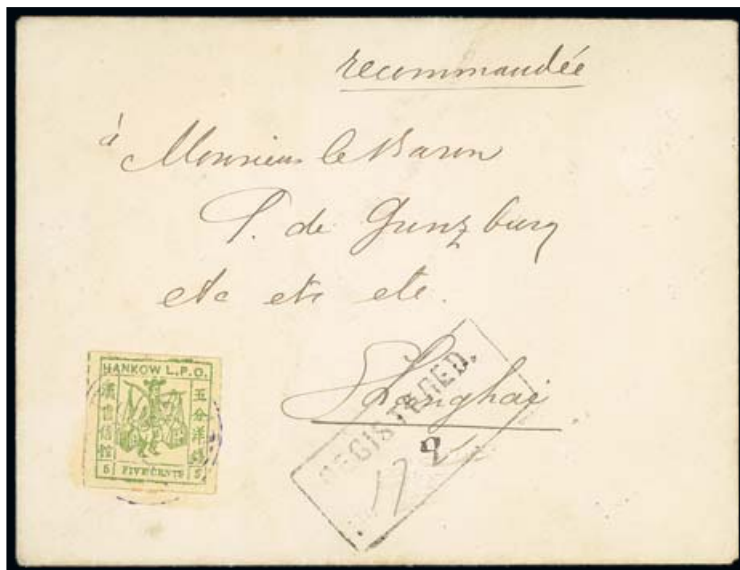 recommandée
à Monsieur le Baron
de Gunzburg
etc etc etc.
Shanghai
REGISTERED.
17
2
HANKOW L.P.O.
五分洋銀
書信館
5 FIVE CENTS 5